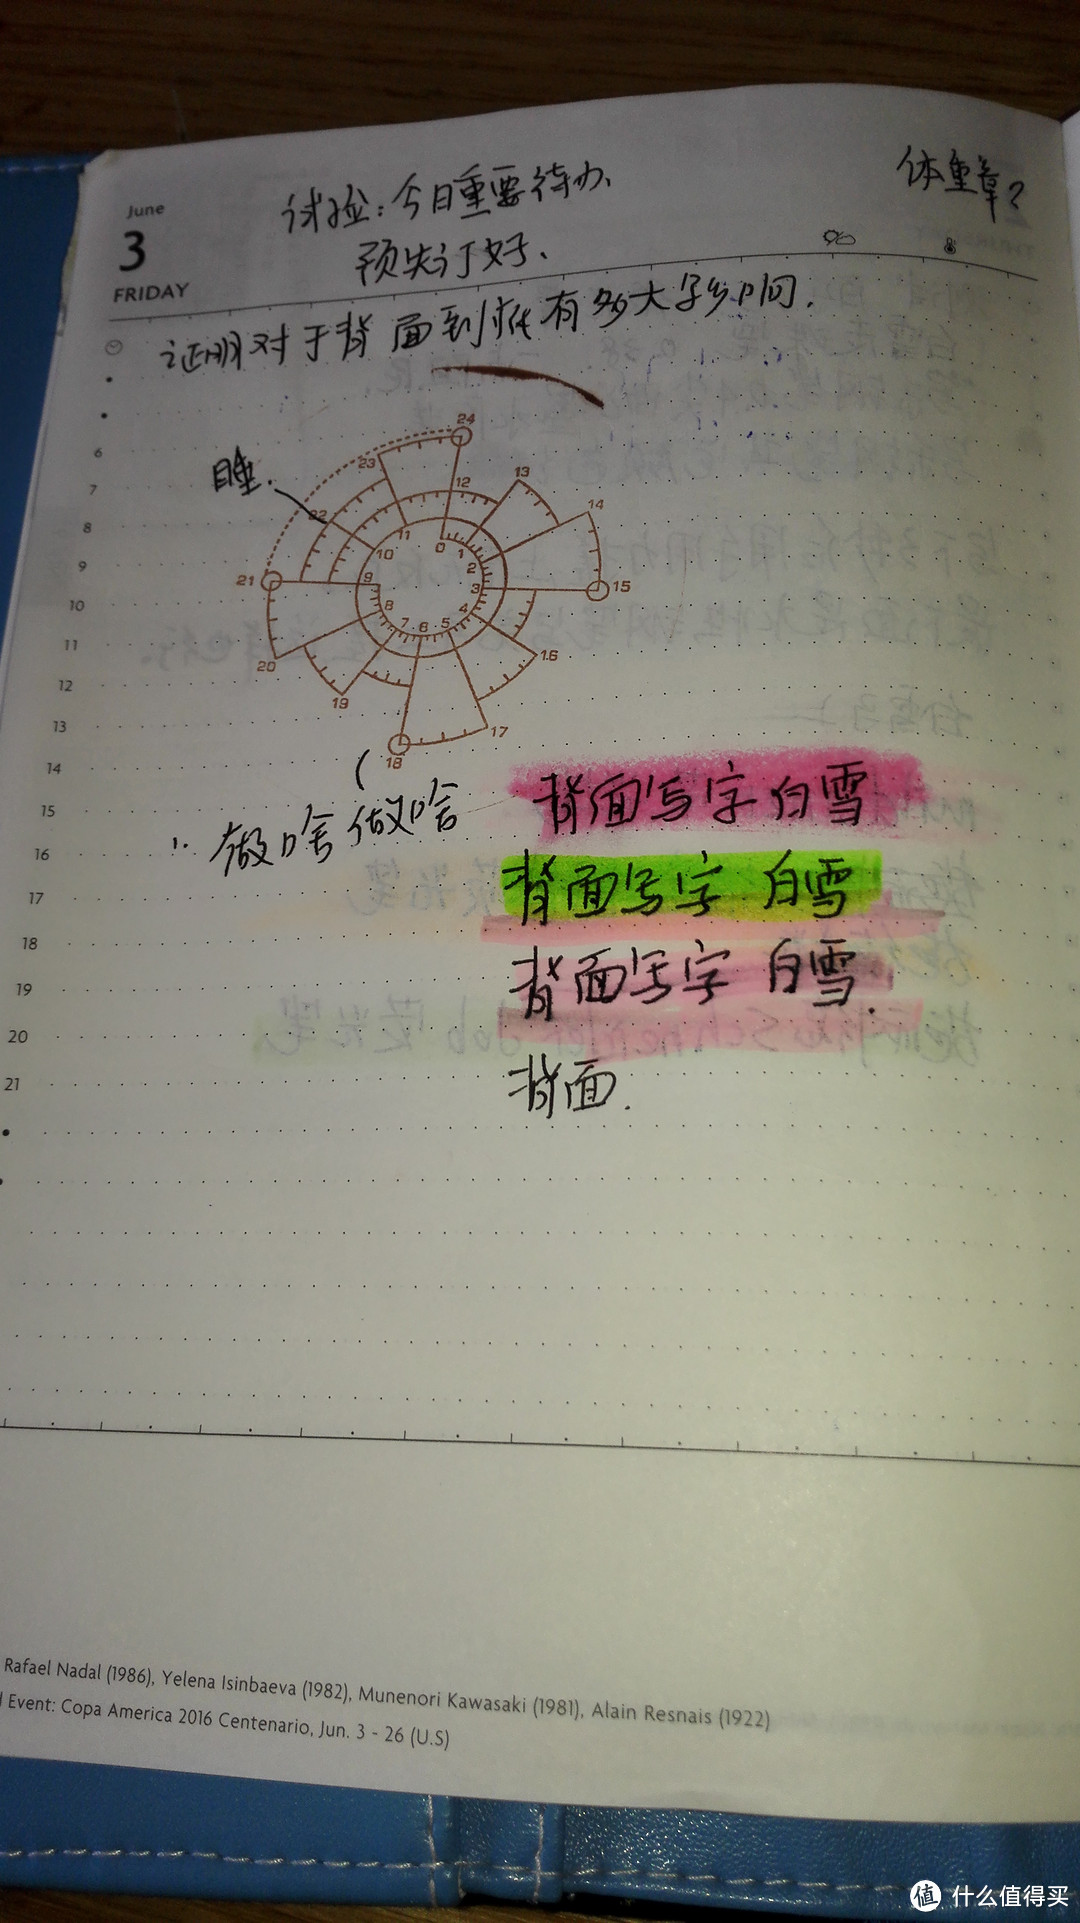 June
3
FRIDAY
试验:今日重要待办、
预先订好、
体重章?
证明对于背面到底有多大字乡间.
24
23
12
13
14
睡.
22
11
10
0
1
2
21
9
3
15
8
7
6
5
4
20
16
19
17
18
6
7
8
9
10
11
12
13
14
15
16
17
18
19
20
21
做啥做啥
背面写字 白雪
背面写字 白雪
背面写字 白雪.
背面.
Rafael Nadal (1986), Yelena Isinbaeva (1982), Munenori Kawasaki (1981), Alain Resnais (1922)
Event: Copa America 2016 Centenario, Jun. 3 - 26 (U.S)
值 什么值得买